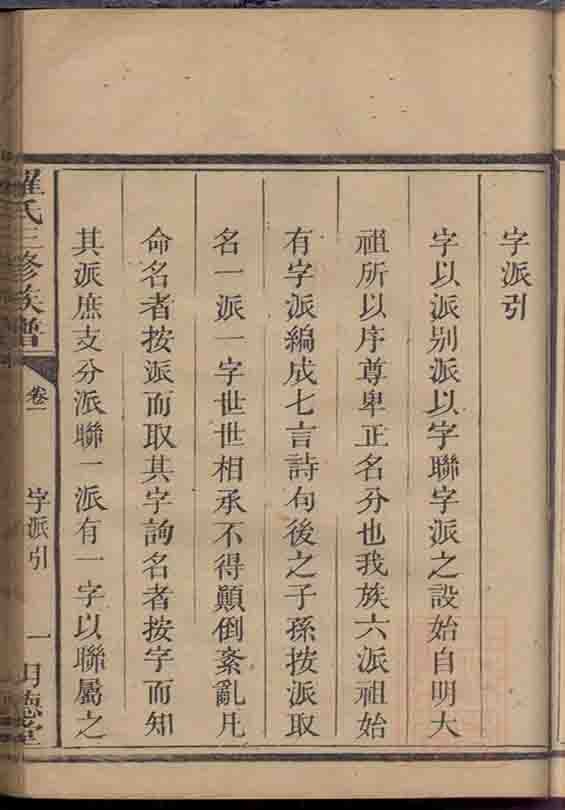 字派引
字以派別派以字聯字派之設始自明大
祖所以序尊卑正名分也我族六派祖始
有字派編成七言詩句後之子孫按派取
名一派一字世世相承不得顛倒紊亂凡
命名者按派而取其字詢名者按字而知
其派庶支分派聯一派有一字以聯屬之
羅氏三修族譜
卷一
字派引
一
明德堂